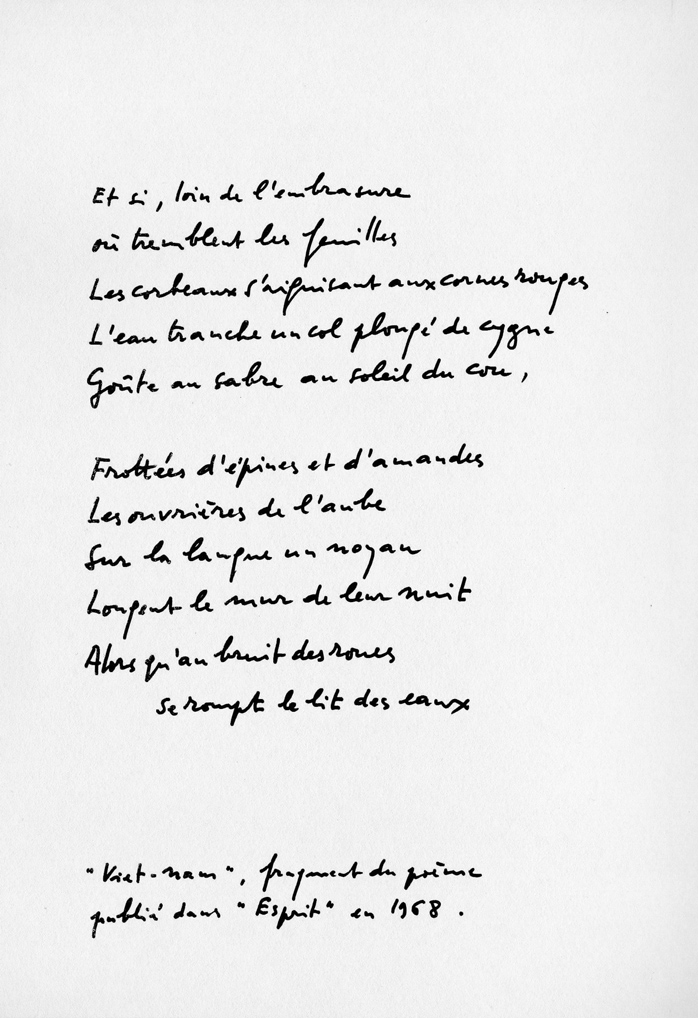 Et si, loin de l'embrasure
où tremblent les feuilles
Les corbeaux s'aiguisant aux cornes rouges
L'eau tranche un col plongé de cygne
Goûte au sabre au soleil du cou,
Frottées d'épines et d'amandes
Les ouvrières de l'aube
Sur la langue un noyau
Longent le mur de leur nuit
Alors qu'au bruit des roues
se rompt le lit des eaux
"Viet-nam", fragment du poème
publié dans "Esprit" en 1968.